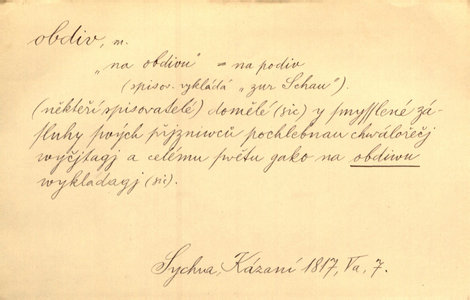 obdiv, m.
„na obdivu" = na podiv
(spisov. vykládá „zur Schau").
(někteří spisovatelé) domělé (sic) y smyšlené zá-
sluhy swých přjzniwců pochlebnau chwálořečj
wyčjtagj a celému swětu gako na obdiwu
wykládagj (sic).
Sychra, Kázaní 1817, Va, 7.